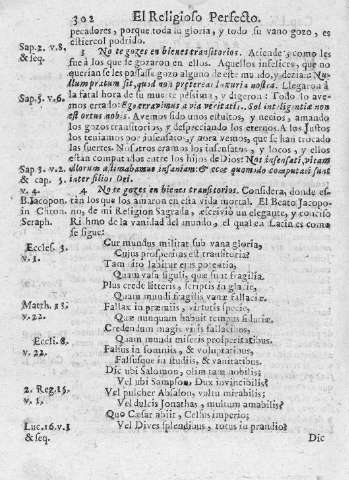 302 El Religioso Perfecto.
pecadores, porque toda su gloria, y todo su vano gozo, es
estiercol podrido.
Sap. 2. v. 8, & seq.
3 No te gozes en bienes transitorios. Atiende, como les
fue à los que se gozaron en ellos. Aquellos infelices, que no
querian se les passasse gozo alguno de este mundo, y dezian: Nu-
llum pratum sit, quod non pertranseat luxuria nostra. Llegaron à
la fatal hora de su muerte pesima, y digeron: Todo lo ave-
Sap. 5. v. 6.
mos errado: Ergo erravimus à via veritatis. Sol intelligentiæ non
est ortus nobis. Avemos sido unos estultos, y necios, amando
los gozos transitorios, y despreciando los eternos. A los Justos
los teniamos por insensatos, y aora vemos, que se han trocado
las suertes. Nosotros eramos los insensatos, y locos, y ellos
estàn computados entre los hijos de Dios: Nos insensati, vitam
Sap. 3. v. 2. & cap. 5. v. 4.
illorum æstimabamus insaniam: & ecce quomodo computati sunt
inter filios Dei.
4 No te gozes en bienes transitorios. Considera, donde es-
B. Jacopon. in Chron. Seraph.
tàn los que los amaron en esta vida mortal. El Beato Jacopo-
no, de mi Religion Sagrada, escriviò un elegante, y conciso
Rithmo de la vanidad del mundo, el qual en Latin es como
se sigue:
Eccles. 3. v. 1.
Cur mundus militat sub vana gloria,
Cujus prosperitas est transitoria?
Tam citò labitur ejus potentia,
Quam vasa figuli, quæ sunt fragilia.
Plus crede litteris, scriptis in glacie,
Quam mundi fragilis vanæ fallaciæ.
Matth. 13. v. 22.
Fallax in præmiis, virtutis specie,
Quæ nunquam habuit tempus fiduciæ.
Credendum magis viris fallacibus,
Quam mundi miseris prosperitatibus.
Eccli. 8. v. 22.
Falsus in somniis, & voluptatibus,
Falsusque in studiis, & vanitatibus.
Dic ubi Salomon, olim tam nobilis;
Vel ubi Sampson, Dux invincibilis?
2. Reg. 15. v. 1.
Vel pulcher Absalon, vultu mirabilis?
Vel dulcis Jonathas, multum amabilis?
Quo Cæsar abiit, Celsus imperio;
Luc. 16. v. 1 & seq.
Vel Dives splendidus, totus in prandio?
Dic